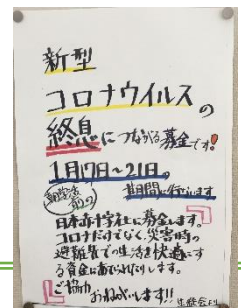 新型
コロナウイルスの
終息につながる募金です!
1月17日~21日。
朝学活前の 期間に行います
日本赤十字社に募金します。
コロナだけでなく、災害時の
避難者での生活を快適にす
る資金にあてられたりします。
ご協力
おねがいします!!
生徒会より